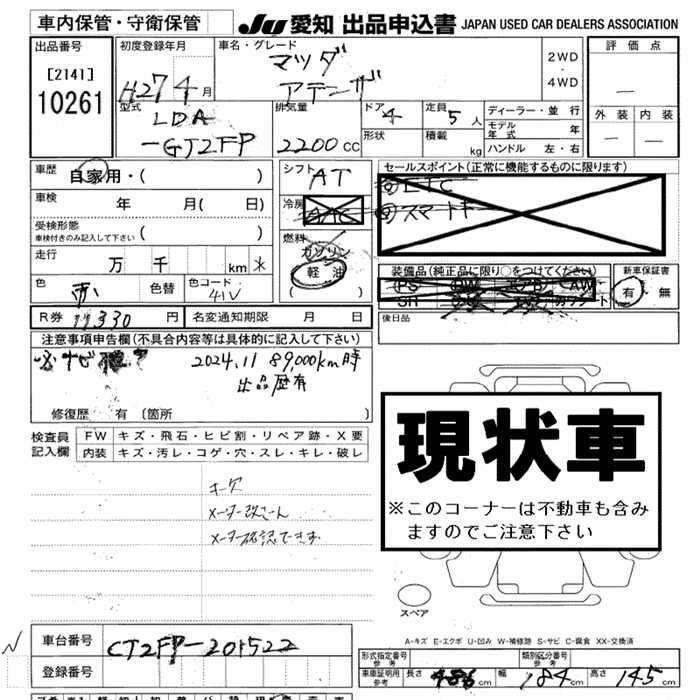 車内保管・守衛保管
JU 愛知 出品申込書 JAPAN USED CAR DEALERS ASSOCIATION
出品番号 [2141] 10261
初度登録年月 H27 4月
車名・グレード マツダ アテンザ
2WD ・ 4WD
評価点 —
外装 — 内装 —
型式 LDA-GJ2FP
排気量 2200cc
ドア 4
形状
定員 5人
積載 kg
ディーラー・並行
モデル年式 年
ハンドル 左・右
車歴 自家用・( )
車検 年 月( 日)
受検形態 車検付きのみ記入して下さい ( )
走行 万 千 km *
色 赤 色替 色コード 41V
シフト AT
冷房 AAC
燃料 ガソリン 軽油 ( )
セールスポイント(正常に機能するものに限ります)
①ETC
②スマートキ
装備品(純正品に限り○をつけてください)
PS PW エアB AW
SR ナビ TV カワシート
新車保証書 有 無
後日品
R券 円
名変通知期限 月 日
注意事項申告欄(不具合内容等は具体的に記入して下さい)
2024.11 89,000km時
出品歴有
修復歴 有 〔箇所 〕
検査員記入欄
FW キズ・飛石・ヒビ割・リペア跡・X要
内装 キズ・汚レ・コゲ・穴・スレ・キレ・破レ
キー欠
メーター改ざん
メーター確認できず
現状車
※このコーナーは不動車も含みますのでご注意下さい
スペア
A-キズ E-エクボ U-凹み W-補修跡 S-サビ C-腐食 XX-交換済
車台番号 GJ2FP-201522
登録番号
形式指定番号 参考
類別区分番号 参考
車庫証明用 参考 長さ 486cm 幅 184cm 高さ 145cm